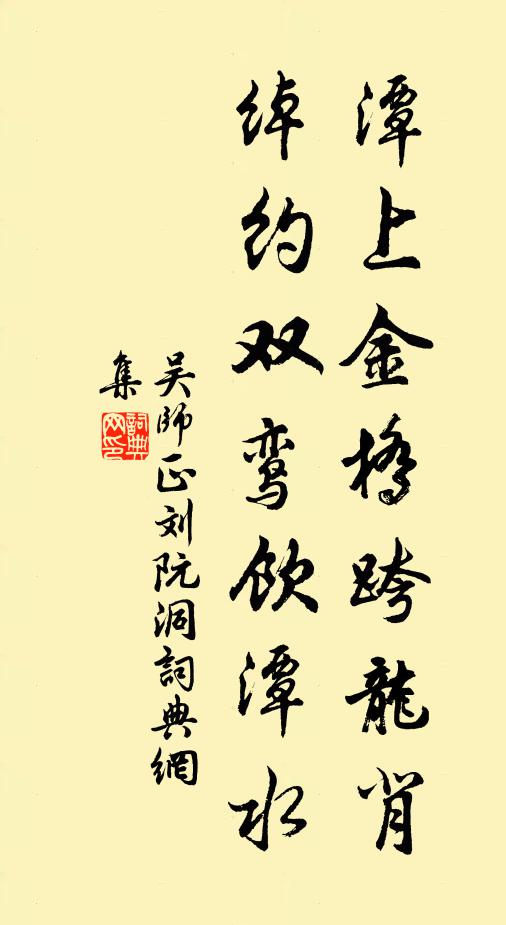 潭上金桥跨龍背
绰约双鸾饮潭水
吴師正刘阮洞詞典網
集
詞典网印